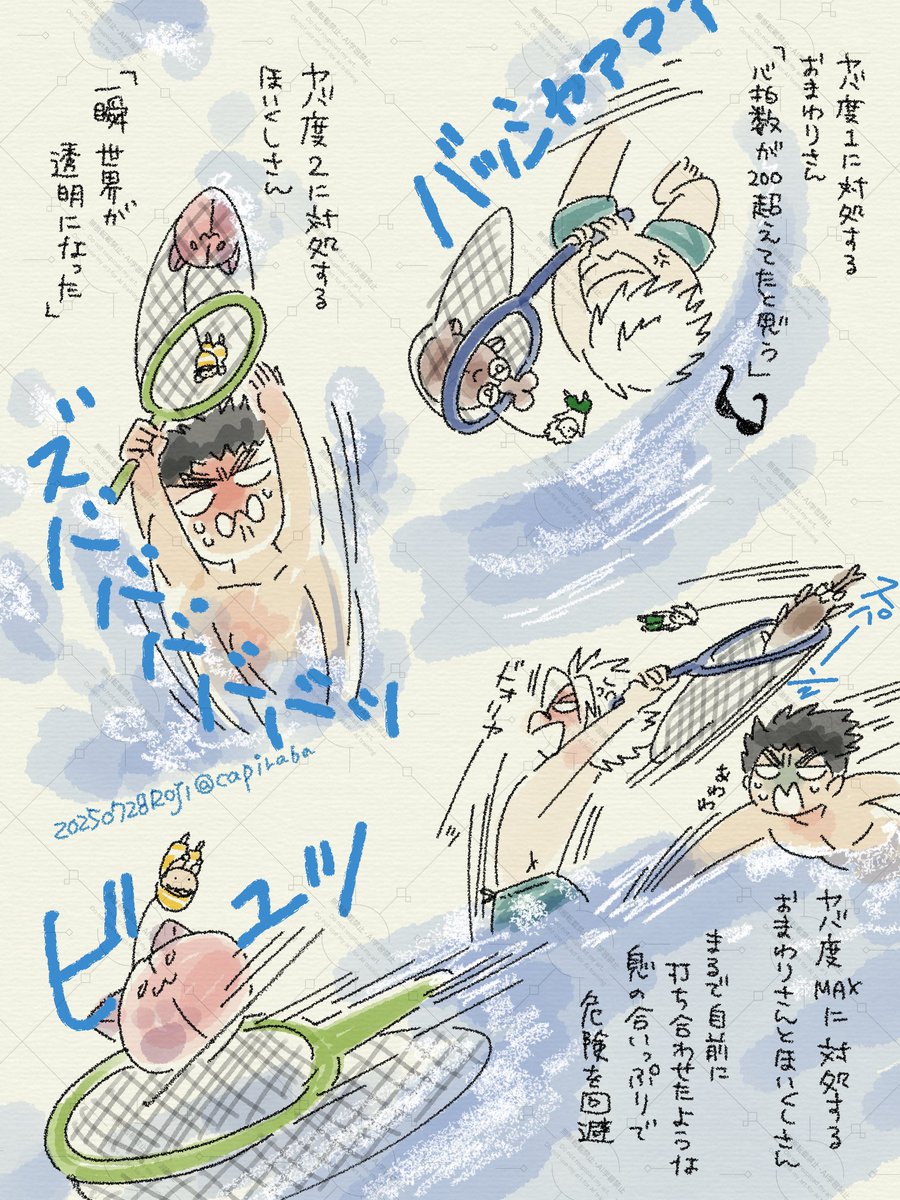 ヤバ度1に対処する
おまわりさん
「心拍数が200超えてたと思う」
バッシャアアマア
ヤバ度2に対処する
ほいくしさん
「一瞬 世界が
透明になった」
ズババババババッ
20250728ROJI@capiraba
ドォリャ
あわわわ
ビュッ
ヤバ度MAXに対処する
おまわりさんとほいくしさん
まるで自前に
打ち合わせたような
息の合いっぷりで
危険を回避